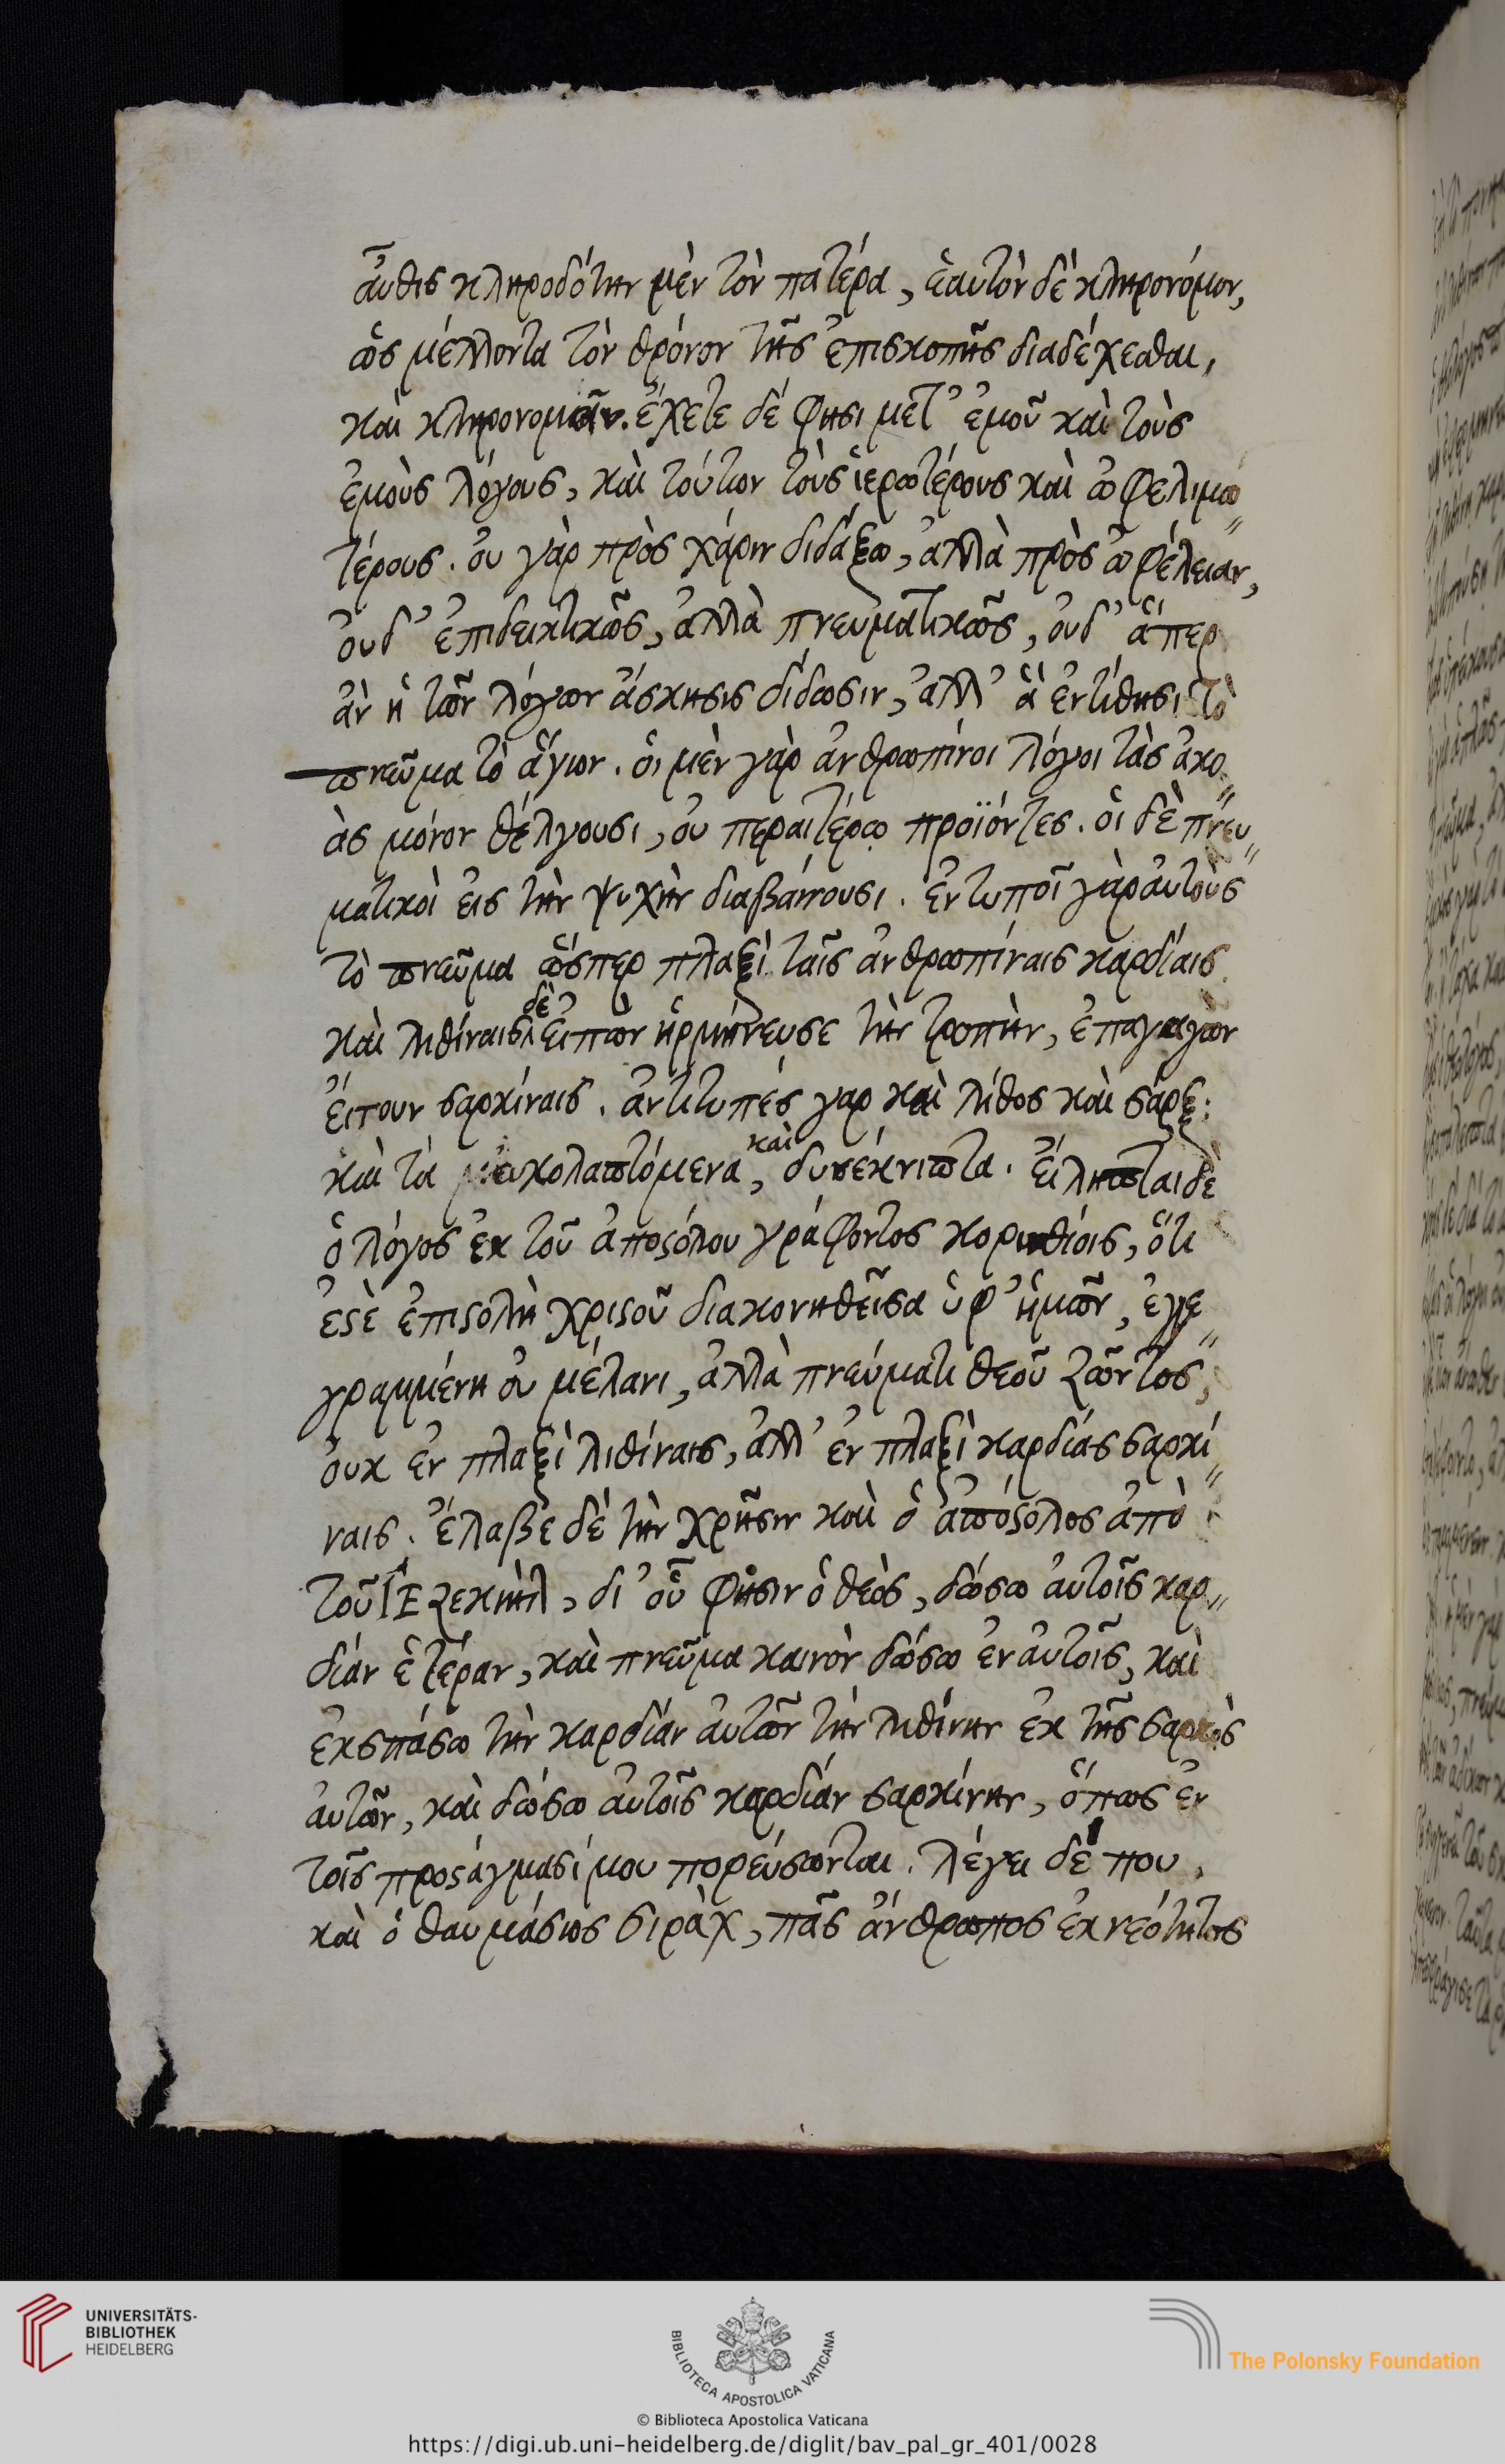 αὖθις κληροδότην μὲν τὸν πατέρα, ἑαυτὸν δὲ κληρονόμον,
ὡς μέλλοντα τὸν θρόνον τῆς ἐπισκοπῆς διαδέχεσθαι,
καὶ κληρονομεῖν. ἔχετε δέ φησι μετ' ἐμοῦ καὶ τοὺς
ἐμοὺς λόγους, καὶ τούτων τοὺς ἱερωτέρους καὶ ὠφελιμω
τέρους. οὐ γὰρ πρὸς χάριν διδάξω, ἀλλὰ πρὸς ὠφέλειαν,
οὐδ' ἐπιδεικτικῶς, ἀλλὰ πνευματικῶς, οὐδ' ἅπερ
ἂν ἡ τῶν λόγων ἄσκησις δίδωσιν, ἀλλ' ἃ ἐντίθησι τὸ
πνεῦμα τὸ ἅγιον. οἱ μὲν γὰρ ἀνθρωπίνοι λόγοι τὰς ἀκο
ὰς μόνον θέλγουσι, οὐ περαιτέρω προϊόντες. οἱ δὲ πνευ
ματικοὶ εἰς τὴν ψυχὴν διαβαίνουσι. ἐντυποῖ γὰρ αὐτοὺς
τὸ πνεῦμα ὥσπερ πλαξὶ ταῖς ἀνθρωπίναις καρδίαις
καὶ λιθίναις δὲ εἰπὼν ἡρμήνευσε τὴν τροπὴν, ἐπαγαγὼν
εἴτουν σαρκίναις. ἀντιτυπές γαρ καὶ λίθος καὶ σάρξ:
καὶ τά κολαπτόμενα, καὶ δυσέκνιπτα. εἴληπται δὲ
ὁ λόγος ἐκ τοῦ ἀποστόλου γράφοντος κορινθίοις, ὅτι
ἐστὲ ἐπιστολὴ χριστοῦ διακονηθεῖσα ὑφ' ἡμῶν, ἐγγε
γραμμένη οὐ μέλανι, ἀλλὰ πνεύματι θεοῦ ζῶντος,
οὐκ ἐν πλαξὶ λιθίναις, ἀλλ' ἐν πλαξὶ καρδίας σαρκί
ναις. ἔλαβε δὲ τὴν χρῆσιν καὶ ὁ ἀπόστολος ἀπὸ
τοῦ Ἰεζεκιὴλ, δι' οὗ φησιν ὁ θεὸς, δώσω αὐτοῖς καρ
δίαν ἑτέραν, καὶ πνεῦμα καινὸν δώσω ἐν αὐτοῖς, καὶ
ἐκσπάσω τὴν καρδίαν αὐτῶν τὴν λιθίνην ἐκ τῆς σαρκὸς
αὐτῶν, καὶ δώσω αὐτοῖς καρδίαν σαρκίνην, ὅπως ἐν
τοῖς προστάγμασί μου πορεύσωνται. λέγει δέ που
καὶ ὁ θαυμάσιος σιρὰχ, πᾶς ἄνθρωπος ἐκ νεότητος
UNIVERSITÄTS-
BIBLIOTHEK
HEIDELBERG
BIBLIOTECA APOSTOLICA VATICANA
The Polonsky Foundation
© Biblioteca Apostolica Vaticana
https://digi.ub.uni-heidelberg.de/diglit/bav_pal_gr_401/0028